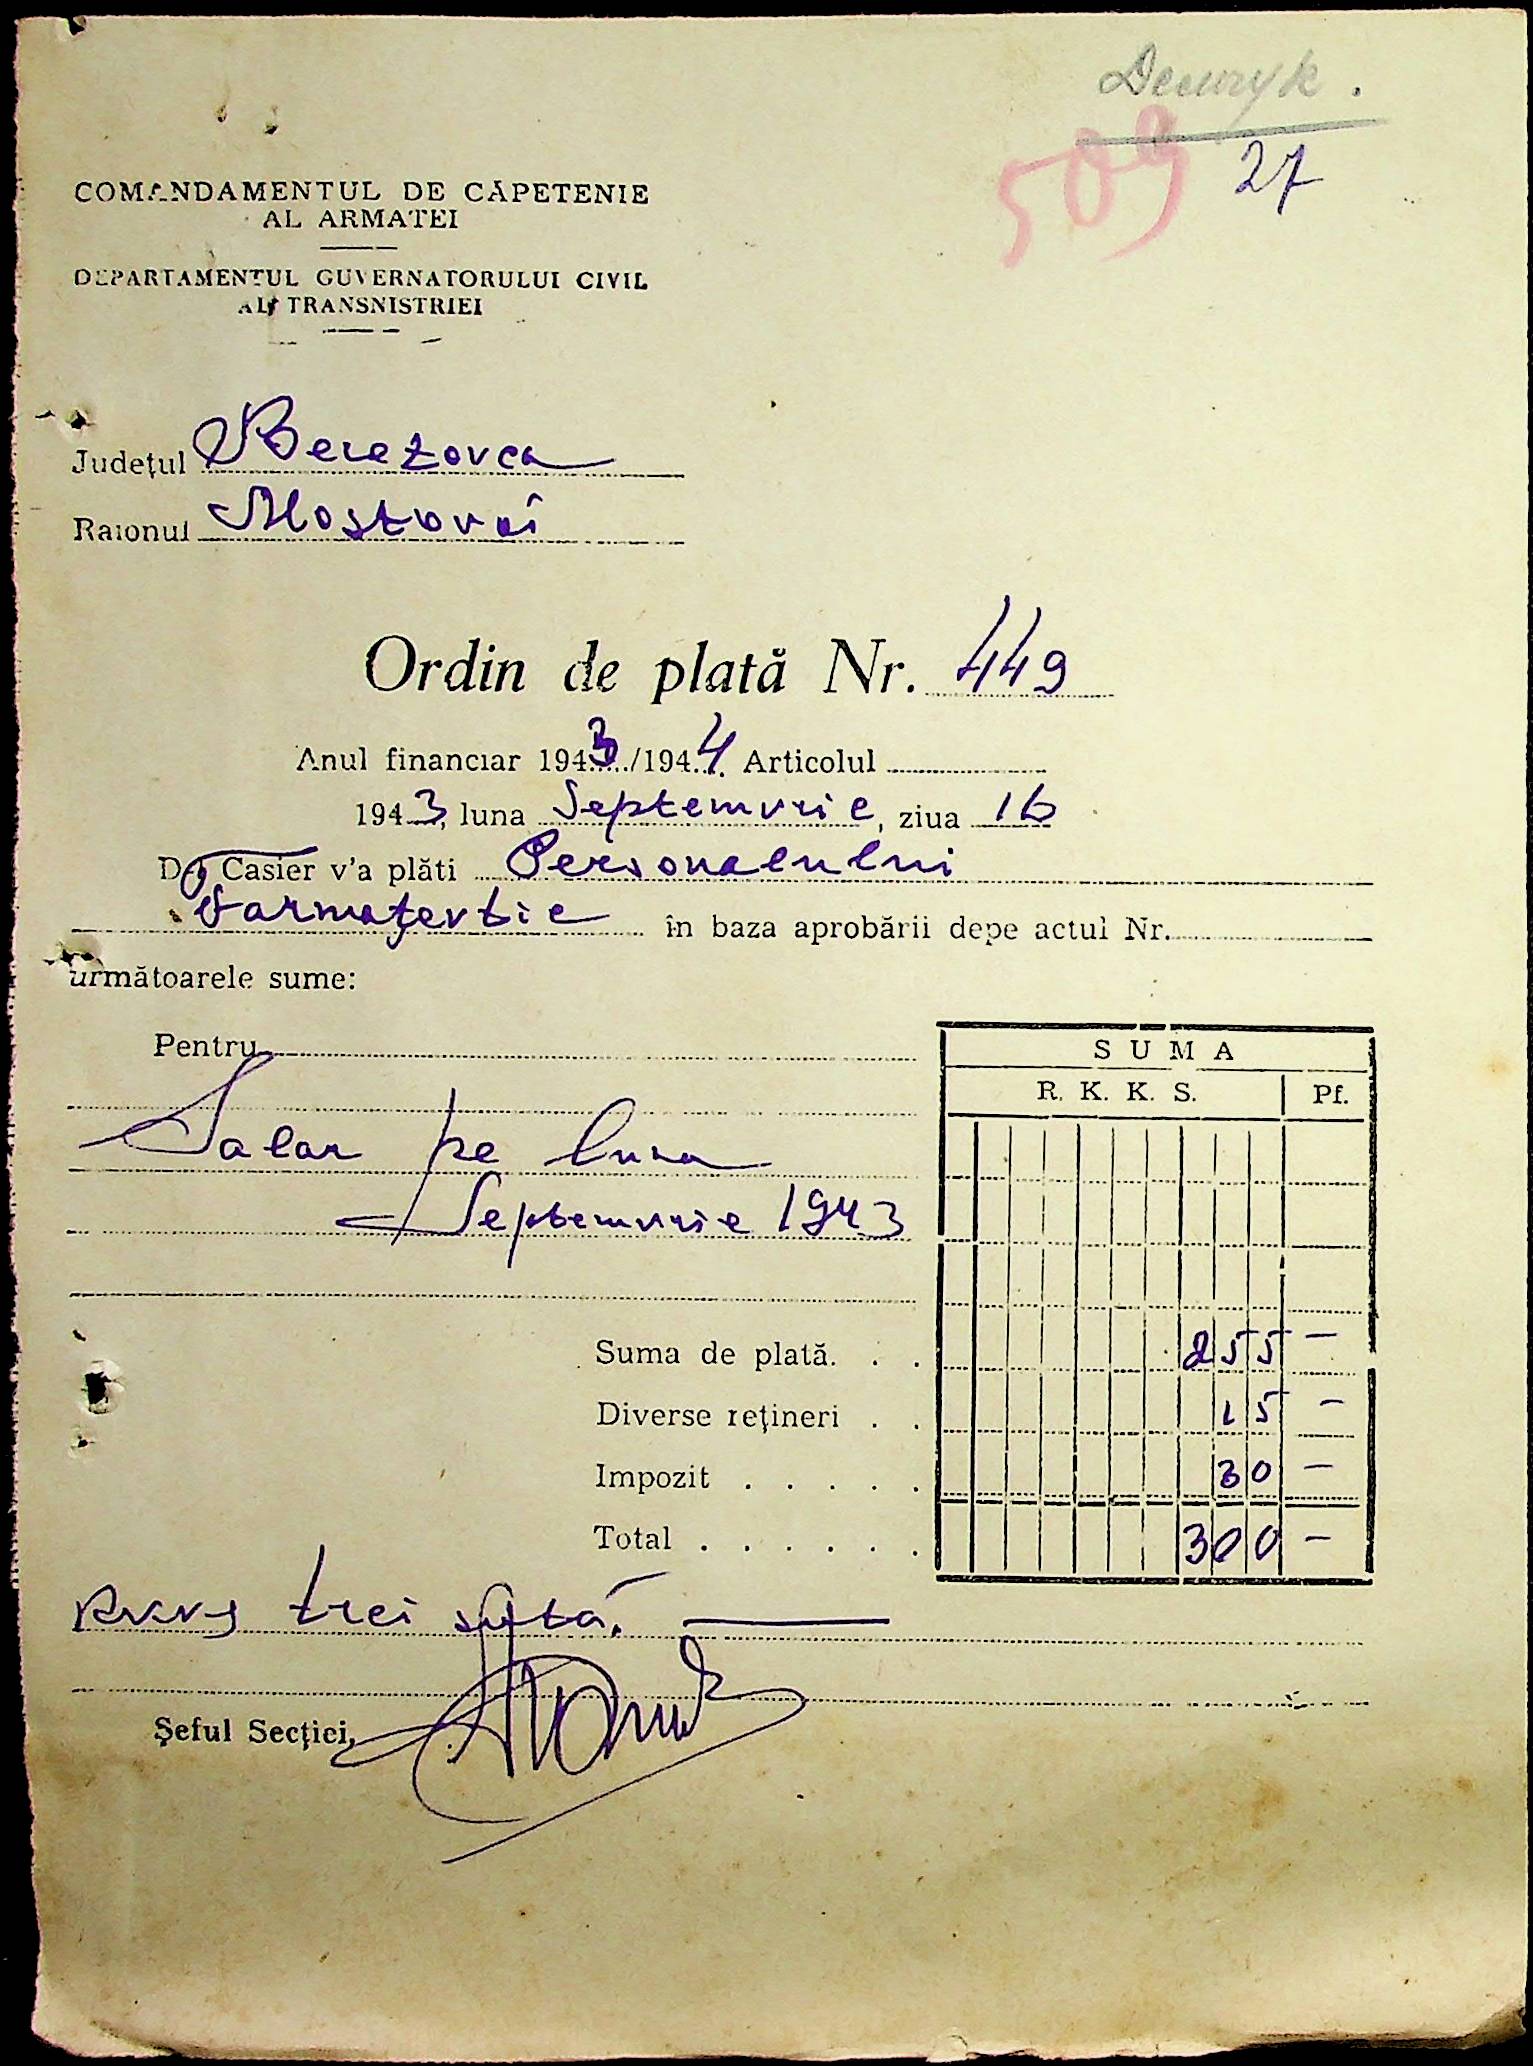 509
27
COMANDAMENTUL DE CĂPETENIE
AL ARMATEI
DEPARTAMENTUL GUVERNATORULUI CIVIL
AL TRANSNISTRIEI
Județul Berezovca
Raionul Mostovoi
Ordin de plată Nr. 449
Anul financiar 1943/1944 Articolul
1943, luna Septemvrie, ziua 16
Dl Casier v'a plăti Personalului
în baza aprobării depe actul Nr.
următoarele sume:
Pentru
SUMA
R. K. K. S. Pf.
Salar pe luna
Septemvrie 1943
Suma de plată. . . 255 —
Diverse rețineri . . 15 —
Impozit . . . . . 30 —
Total . . . . . . 300 —
trei sută.
Şeful Secției,